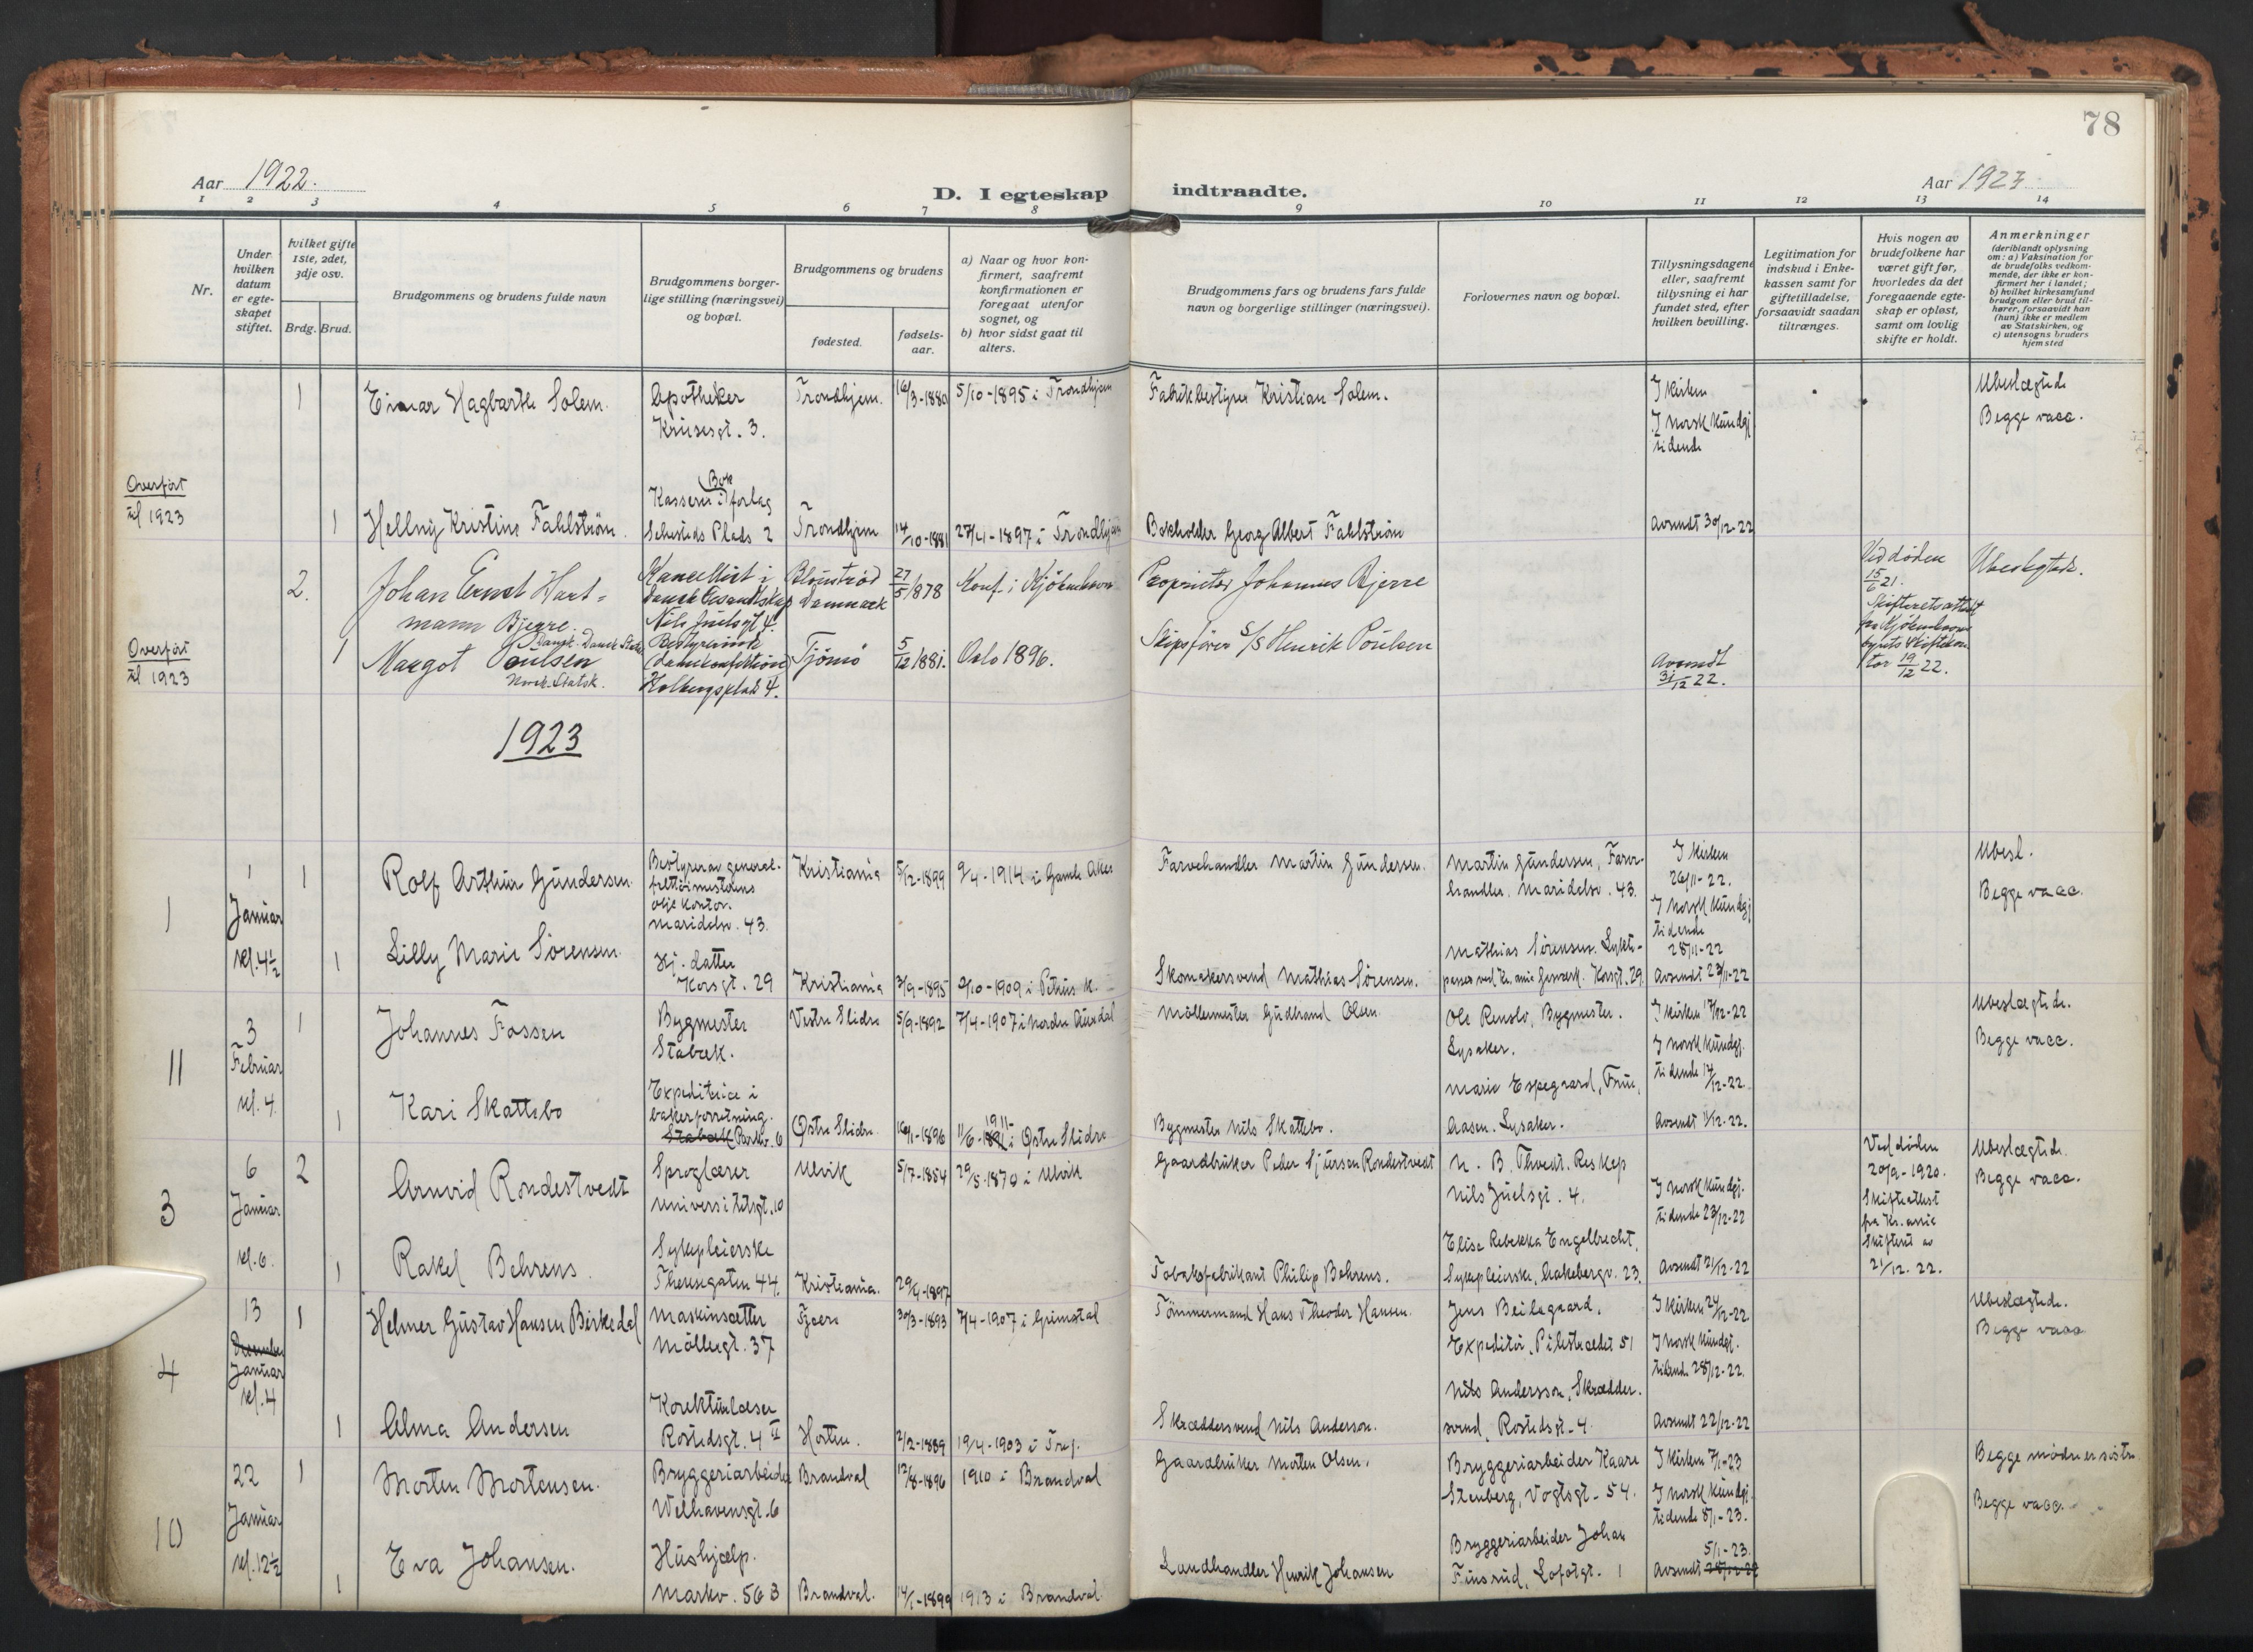 78
Aar 1922.
D. I egteskap indtraadte.
Aar 1923
1 2 3 4 5 6 7 8 9 10 11 12 13 14
Nr.
Under hvilken datum er egteskapet stiftet.
hvilket gifte 1ste, 2det, 3dje osv.
Brdg. Brud.
Brudgommens og brudens fulde navn
Brudgommens borgerlige stilling (næringsvei) og bopæl.
Brudgommens og brudens
fødested.
fødselsaar.
a) Naar og hvor konfirmert, saafremt konfirmationen er foregaat utenfor sognet, og
b) hvor sidst gaat til alters.
Brudgommens fars og brudens fars fulde navn og borgerlige stillinger (næringsvei).
Forlovernes navn og bopæl.
Tillysningsdagene eller, saafremt tillysning ei har fundet sted, efter hvilken bevilling.
Legitimation for indskud i Enkekassen samt for giftetilladelse, forsaavidt saadan tiltrænges.
Hvis nogen av brudefolkene har været gift før, hvorledes da det foregaaende egteskap er opløst, samt om lovlig skifte er holdt.
Anmerkninger
(deriblandt oplysning om: a) Vaksination for de brudefolks vedkommende, der ikke er konfirmert her i landet; b) hvilket kirkesamfund brudgom eller brud tilhører, forsaavidt han (hun) ikke er medlem av Statskirken, og c) utensogns bruders hjemsted
1 Einar Hagbarth Solem. Apotheker Trondhjem. 16/3-1880 5/10-1895 i Trondhjem Fabrikbestyrer Kristian Solem. I kirken Ubeslægtede
Krusesgt. 3. I norsk kundgj Begge vacc.
tidende
Overført Kasserer i Bokforlag
til 1923 1 Hellny Kristine Fahlstrøm. Sehesteds Plads 2 Trondhjem 14/10-1881 27/4-1897 i Trondhjem Bokholder Georg Albert Fahlstrøm Avsendt 30/12-22
2. Johan Ernst Hart- Kancellist i 27/5 1878 Konf. i Kjøbenhavn Proprietær Johannes Bjerre Ved døden Ubeslegtede.
mann Bjerre. Dansk Gesandtskap Danmark 15/6 21.
Nils Juelsgt 4. Skifteretsattest
Dansk. Dansk Stats. fra Kjøbenhavns
Overført 1 Margot Poulsen Bestyrerinde Tjømø 5/12 1881. Oslo 1896. Skipsfører S/S Henrik Poulsen Avsendt
til 1923 Norsk Statsb. (Damekonfektion) 31/12 22. 19/12 22.
Holbergsplads 4.
1923
1 1 Rolf Arthur Gundersen. Bestyrer av general- Kristiania 5/12-1899 9/4-1914 i Gamle Aker Farvehandler Martin Gundersen. Martin Gundersen, Farve- I kirken Ubesl.
handler. Maridalsv. 43. 26/11-22. Begge vacc.
1 Januar olje kontor. I norsk kundgj
Maridalsv. 43. tidende
kl. 4½ 1 Lilly Marie Sørensen. Hj. datter Mathias Sørensen. Lykte- 28/11-22
Korsgt. 29 Kristiania 3/9-1895 Skomakersvend Mathias Sørensen. Korsgt. 29. Avsendt 23/11-22
3 1 Johannes Fossen Bygmester Vestre Slidre 5/9-1892 7/4-1907 i Nordre Aurdal Møllermester Gudbrand Olsen. Bygmester. I kirken 17/12-22 Ubeslægtede.
11 Februar Stabæk. Lysaker. I norsk kundgj. Begge vacc.
tidende 14/12-22
kl. 4. 1 Kari Skattebo Expeditrice i Marie Espegaard, Frue,
bakerforretning. Aasen. Lysaker. Avsendt 11/12-22.
Stabæk Parkv. 6 Østre Slidre. 16/1-1896 11/6-1911 i Østre Slidre Bygmester Nils Skattebo.
6 2 Arnvid Rondestvedt Sproglærer Ulvik 5/7-1854 29/5-1870 i Ulvik Gaardbruker Peder Sjursen Rondestvedt N. B. Thvedt. Ved døden Ubeslægtede.
3 Januar Universitetsgt. 10 Nils Juelsgt. 4. I norsk kundgj. 20/9-1920. Begge vacc.
tidende 23/12-22 Skifteattest
kl. 6. 1 Rakel Behrens. Sykepleierske Elise Rebekka Engelbrecht, fra Kr.ania
Theresegaten 44. Kristiania. 29/4-1897 Tobaksfabrikant Philip Behrens. Sykepleierske, Aakebergv. 23. Avsendt 21/12-22 Skifteret av
21/12. 22.
13 1 Helmer Gustav Hansen Birkedal Maskinsætter Fjære 30/3-1893 7/4-1907 i Grimstad Tømmermand Hans Theodor Hansen. Jens Beilegaard, I kirken 24/12-22 Ubeslægtede.
December Møllergt. 37 Expeditør, Pilestrædet 51 I norsk kundgj. Begge vacc.
4 Januar tidende 28/12-22.
kl. 4 Nils Andersson, Skrædder.
1 Alma Andersen Korekturlæser Skræddersvend Nils Anderson. svend, Rostedsgt. 4. Avsendt 22/12-22
Rostedsgt. 4 II Horten. 2/2-1889 19/4-1903 i Tref.
22 1 Morten Mortensen. Bryggeriarbeider Brandval 12/8-1896 1910 i Brandval Gaardbruker Morten Olsen. Bryggeriarbeider Kaare I kirken 7/1-23 Begge mødre er søstre
Januar Welhavensgt. 6 Stenberg, Vogtsgt. 54. I norsk kundgj. Begge vacc.
10 tidende 8/1-23.
kl. 12½ Eva Johansen. Hushjælp. Bryggeriarbeider Johan 5/1-23.
1 Markv. 56 B Brandval. 14/1-1899 1913 i Brandval. Landhandler Henrik Johansen Finsrud, Lofotgt. 1 Avsendt